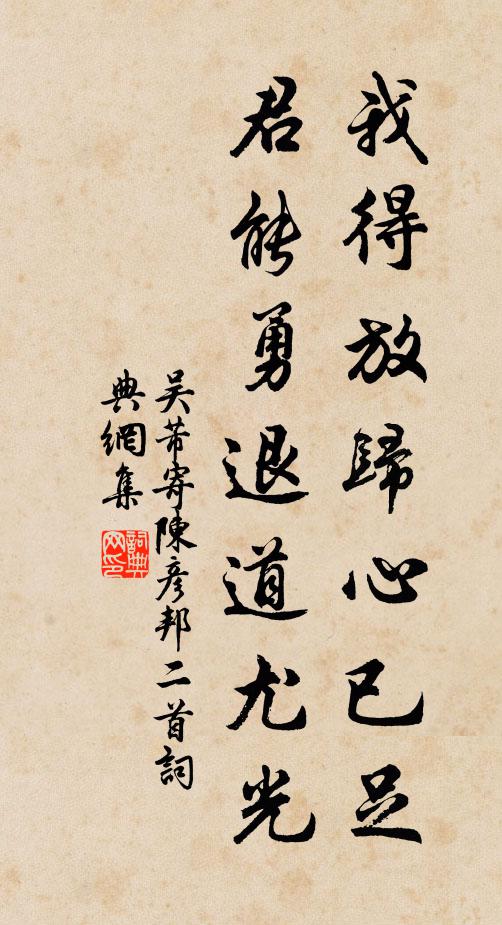 我得放歸心已足
君能勇退道尤光
吳芾寄陳彥邦二首詞
典網集
詞典
网印